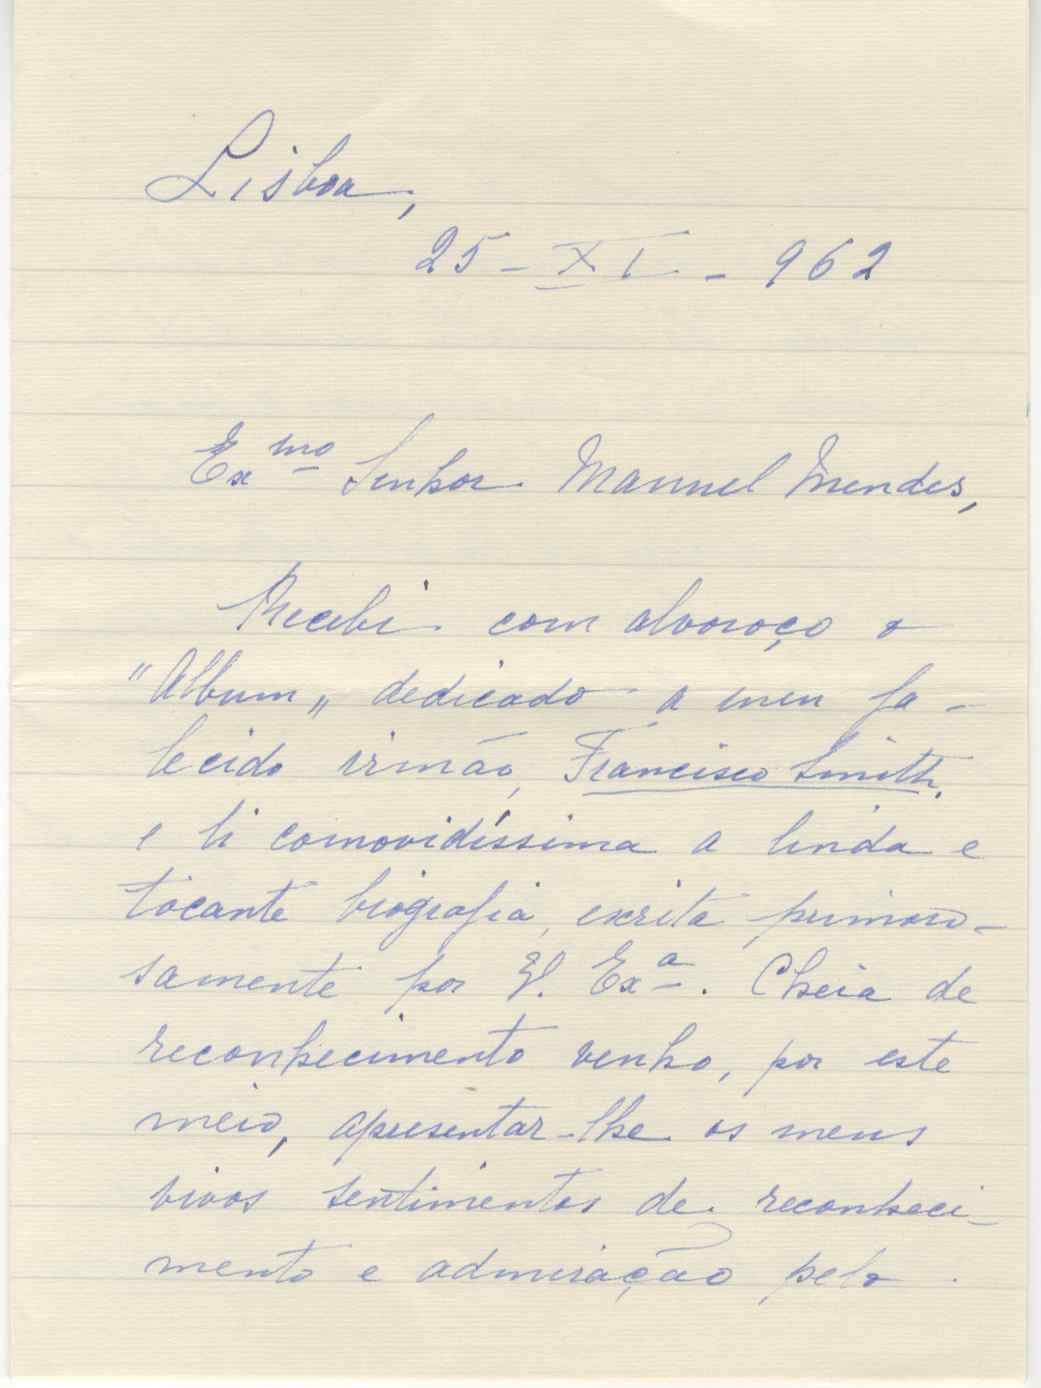 Lisboa,
25-XI-962
Exmo Senhor Manuel Mendes,
Recebi com alvoroço o
"Album" dedicado a meu fa-
lecido irmão, Francisco Smith,
e li comovidíssima a linda e
tocante biografia, escrita primoro-
samente por V. Exa. Cheia de
reconhecimento venho, por este
meio, apresentar-lhe os meus
vivos sentimentos de reconheci-
mento e admiração pelo